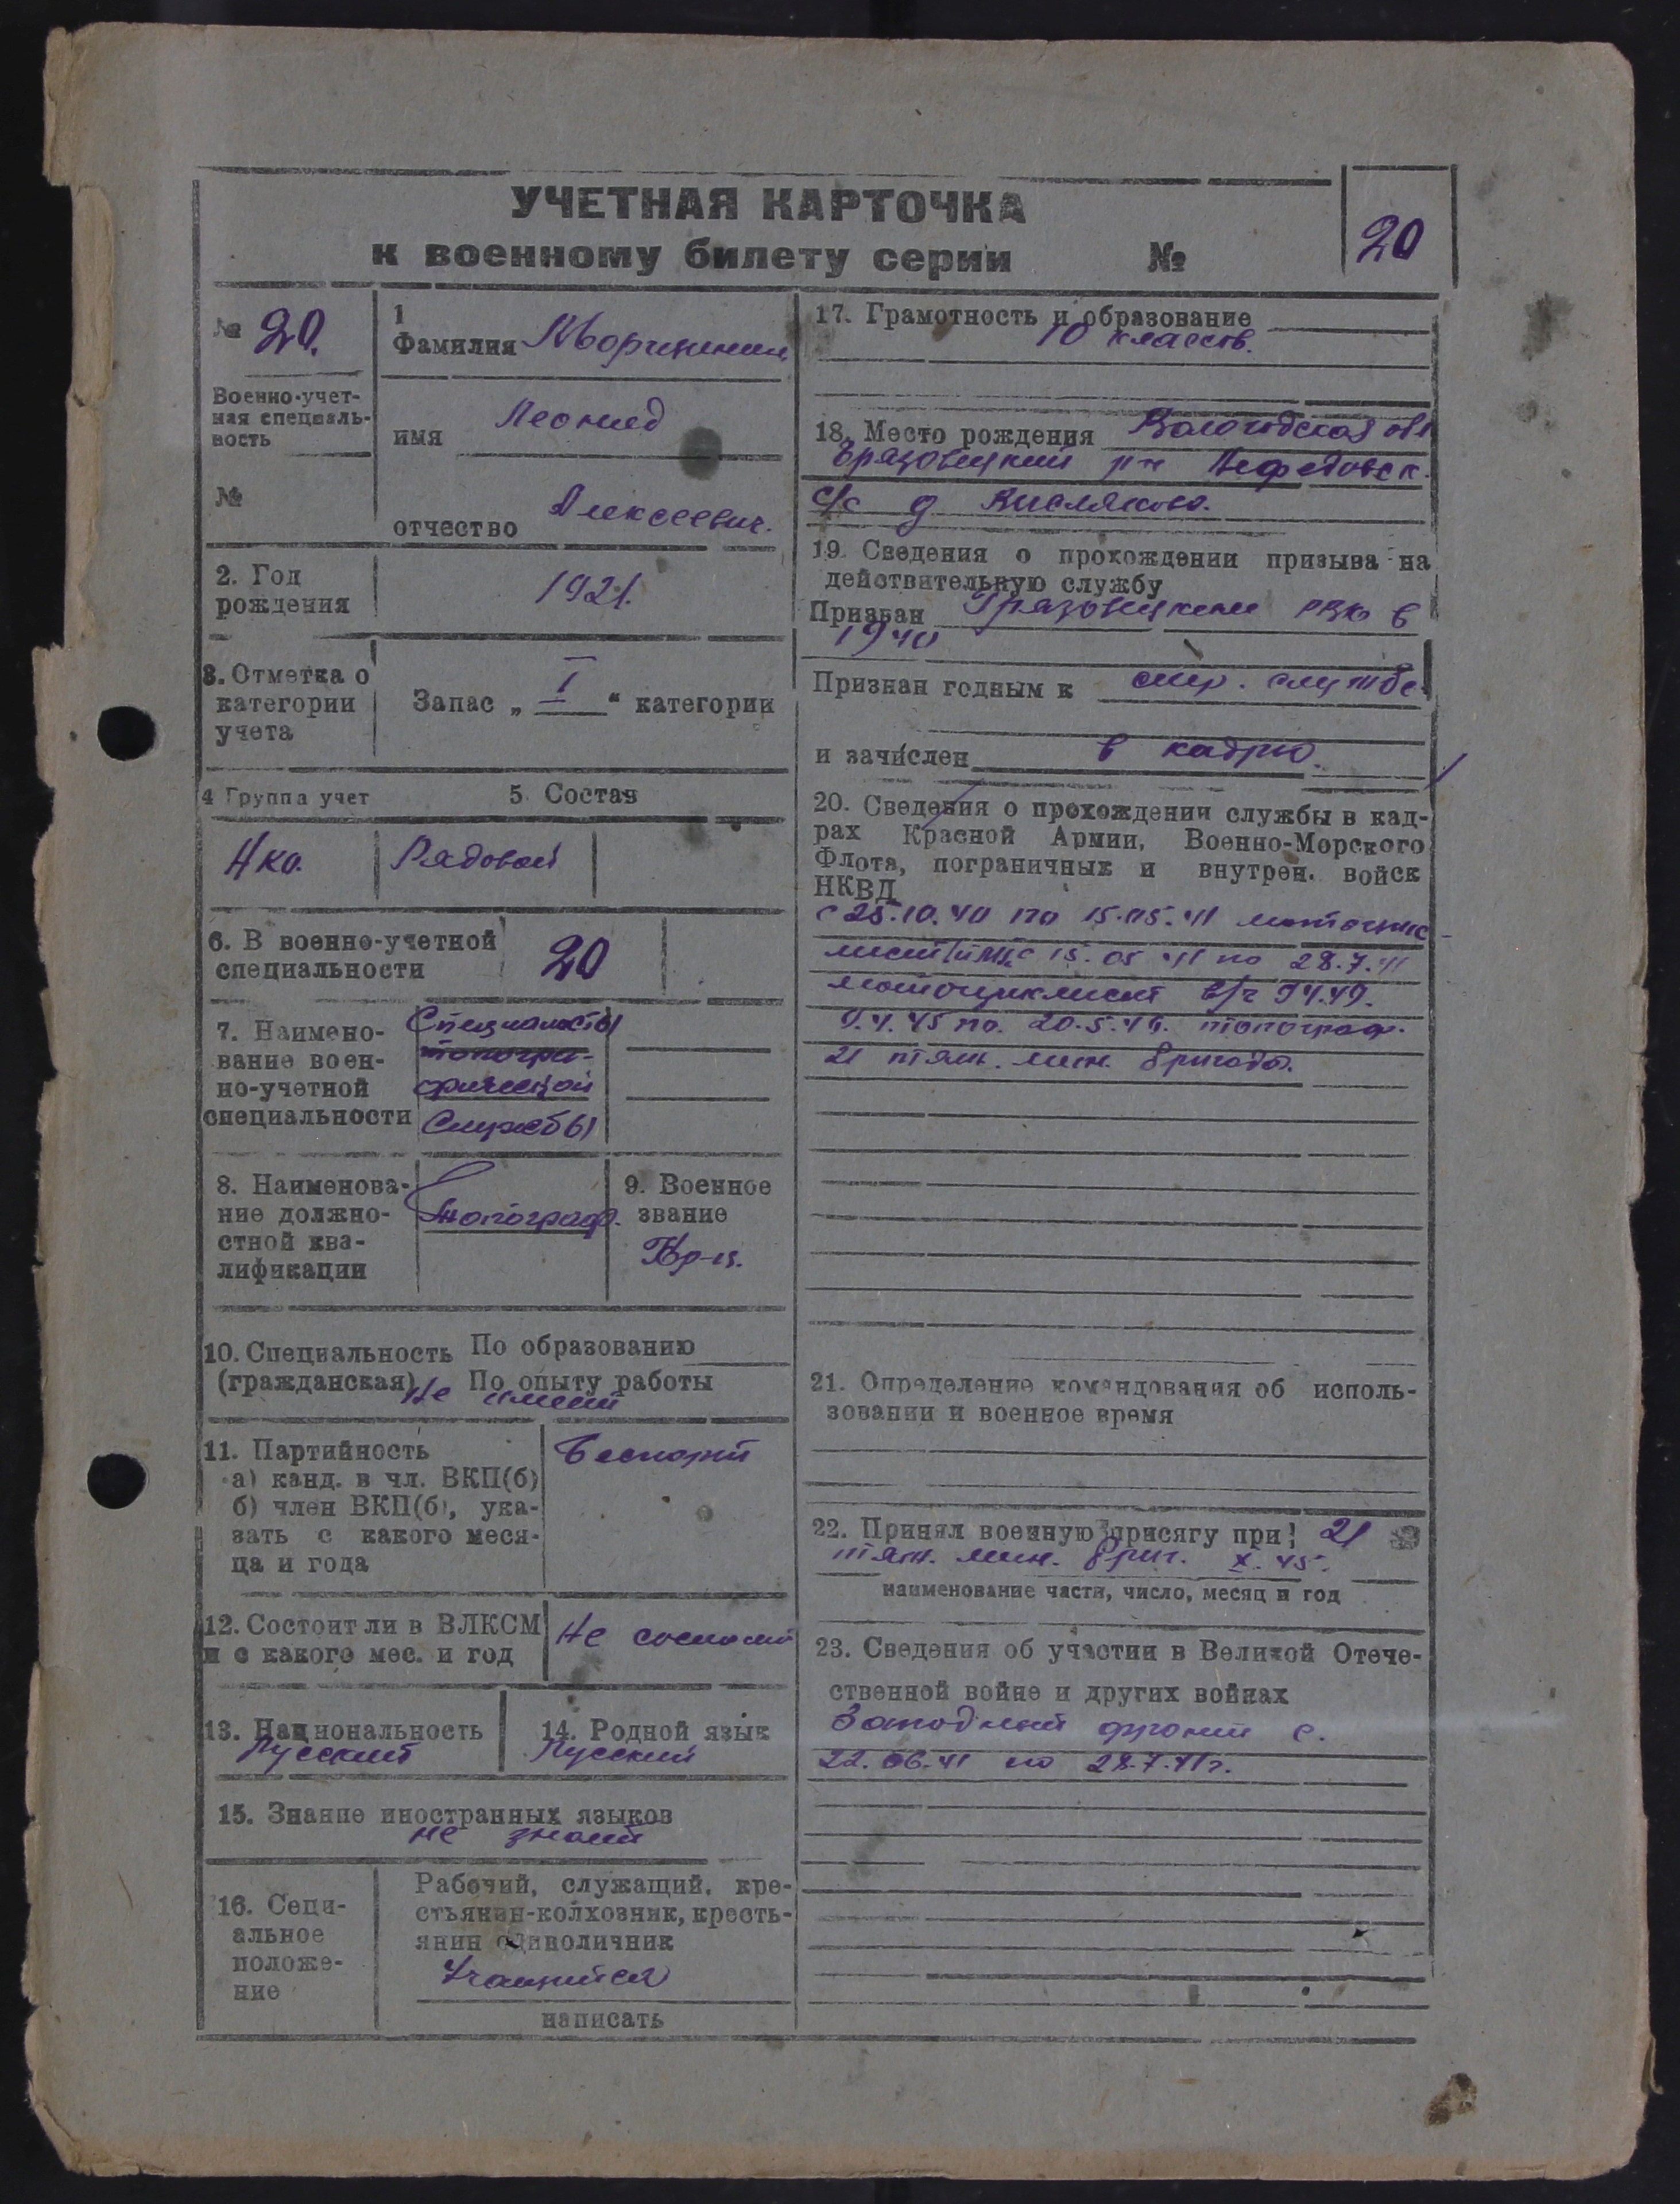 УЧЕТНАЯ КАРТОЧКА
к военному билету серии №
20
№ 20.
Военно-учет-
ная специаль-
ность
№
1
Фамилия
имя Леонид
отчество Алексеевич.
2. Год
рождения
1921.
3. Отметка о
категории
учета
Запас „ I “ категории
4 Группа учет
5. Состав
НКО.
Рядовой
6. В военно-учетной
специальности
20
7. Наимено-
вание воен-
но-учетной
специальности
Специалисты
топогра-
фической
Службы
8. Наименова-
ние должно-
стной ква-
лификации
топограф.
9. Военное
звание
Кр-ц.
10. Специальность По образованию
(гражданская) По опыту работы
не имеет
11. Партийность
а) канд. в чл. ВКП(б)
б) член ВКП(б), ука-
зать с какого меся-
ца и года
Беспарт
12. Состоит ли в ВЛКСМ
и с какого мес. и год
Не состоит
13. Национальность
Русский
14. Родной язык
Русский
15. Знание иностранных языков
не знает
16. Соци-
альное
положе-
ние
Рабочий, служащий, кре-
стьянин-колхозник, кресть-
янин единоличник
Учащийся
написать
17. Грамотность и образование
10 классов.
18. Место рождения Вологодская обл
Грязовецкий р-н Нефедовск.
с/с д.
19. Сведения о прохождении призыва на
действительную службу
Призван Грязовецким РВК в
1940
Признан годным к стр. службе
и зачислен в кадры.
20. Сведения о прохождении службы в кад-
рах Красной Армии, Военно-Морского
Флота, пограничных и внутрен. войск
НКВД
с 25.10.40 по 15.05.41 мотоцик
лист с 15.05.41 по 28.7.41
мотоциклист в/ч 9449.
9.4.45 по 20.5.46. топограф.
21 тяж. мин. бригада.
21. Определение командования об исполь-
зовании в военное время
22. Принял военную присягу при: 21
тяж. мин. бриг. X. 45.
наименование части, число, месяц и год
23. Сведения об участии в Великой Отече-
ственной войне и других войнах
Западный фронт с.
22.06.41 по 28.7.41г.